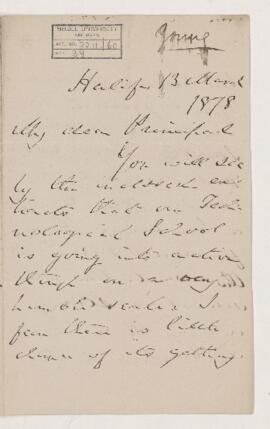 McGILL UNIVERSITY
ARCHIVES
ACC. NO.
REF. 34
Young
Halifax 13 March
1878
My dear Principal
You will see
by the inclosed ex
tracts that our Tech
nological School
is going into active
things on a very
humble scale. I
fear there is little
chance of its getting